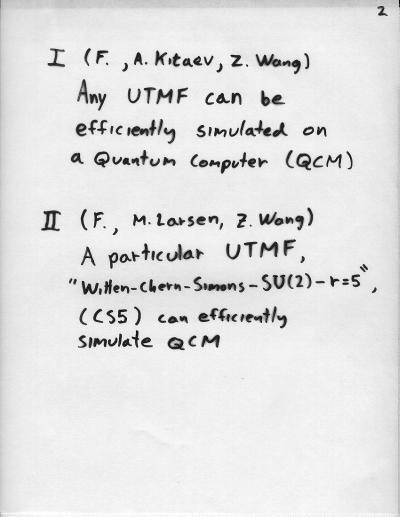 2
I (F. , A. Kitaev, Z. Wang)
Any UTMF can be
efficiently simulated on
a Quantum Computer (QCM)
II (F., M. Larsen, Z. Wang)
A particular UTMF,
"Witten-Chern-Simons-SU(2)-r=5",
(CS5) can efficiently
simulate QCM